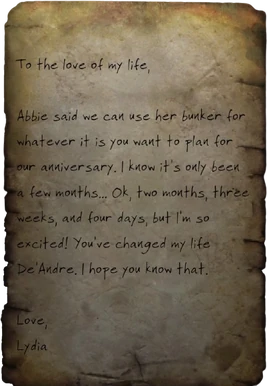 To the love of my life,
Abbie said we can use her bunker for
whatever it is you want to plan for
our anniversary. I know it's only been
a few months... Ok, two months, three
weeks, and four days, but I'm so
excited! You've changed my life
De'Andre. I hope you know that.
Love,
Lydia